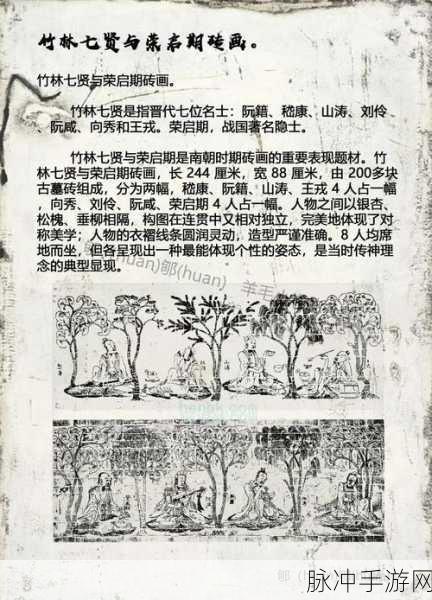 竹林七贤与荣启期砖画。
竹林七贤与荣启期砖画。
竹林七贤是指晋代七位名士：阮籍、嵇康、山涛、刘伶
、阮咸、向秀和王戎。荣启期，战国著名隐士。
竹林七贤与荣启期是南朝时期砖画的重要表现题材。竹
林七贤与荣启期砖画，长 244 厘米，宽 88 厘米，由 200多块
古墓砖组成，分为两幅，嵇康、阮籍、山涛、王戎 4 人占一幅
，向秀、刘伶、阮咸、荣启期 4 人占一幅。人物之间以银杏、
松槐、垂柳相隔，构图在连贯中又相对独立，完美地体现了对
称美学；人物的衣褶线条圆润灵动，造型严谨准确。8 人均席
地而坐，但各呈现出一种最能体现个性的姿态，是当时传神理
念的典型显现。
(huan)郇(huan) 羊毛
郇 (hu
脉冲手游网